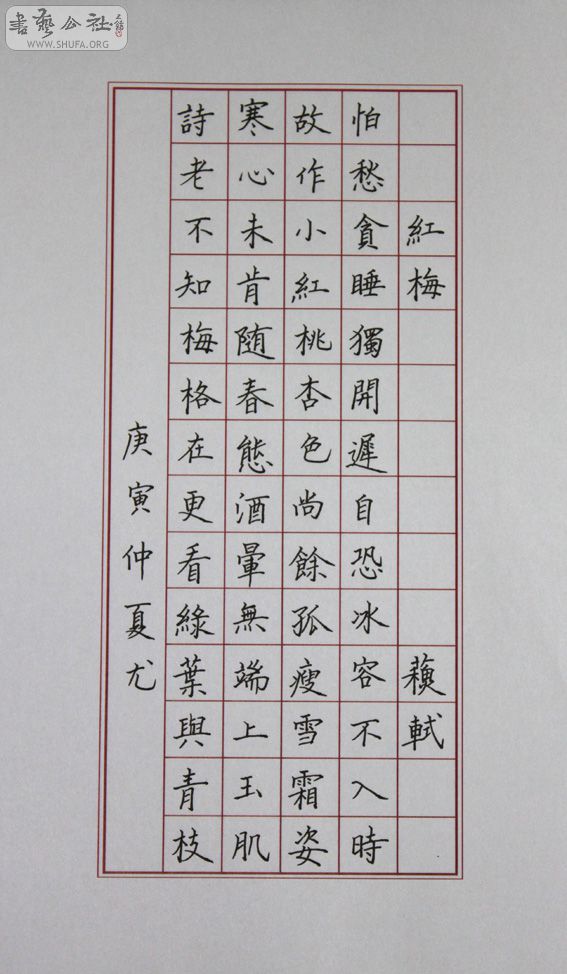 書藝公社
WWW.SHUFA.ORG
紅梅 蘇軾
怕愁貪睡獨開遲自恐冰容不入時
故作小紅桃杏色尚餘孤瘦雪霜姿
寒心未肯随春態酒暈無端上玉肌
詩老不知梅格在更看綠葉與青枝
庚寅仲夏尤